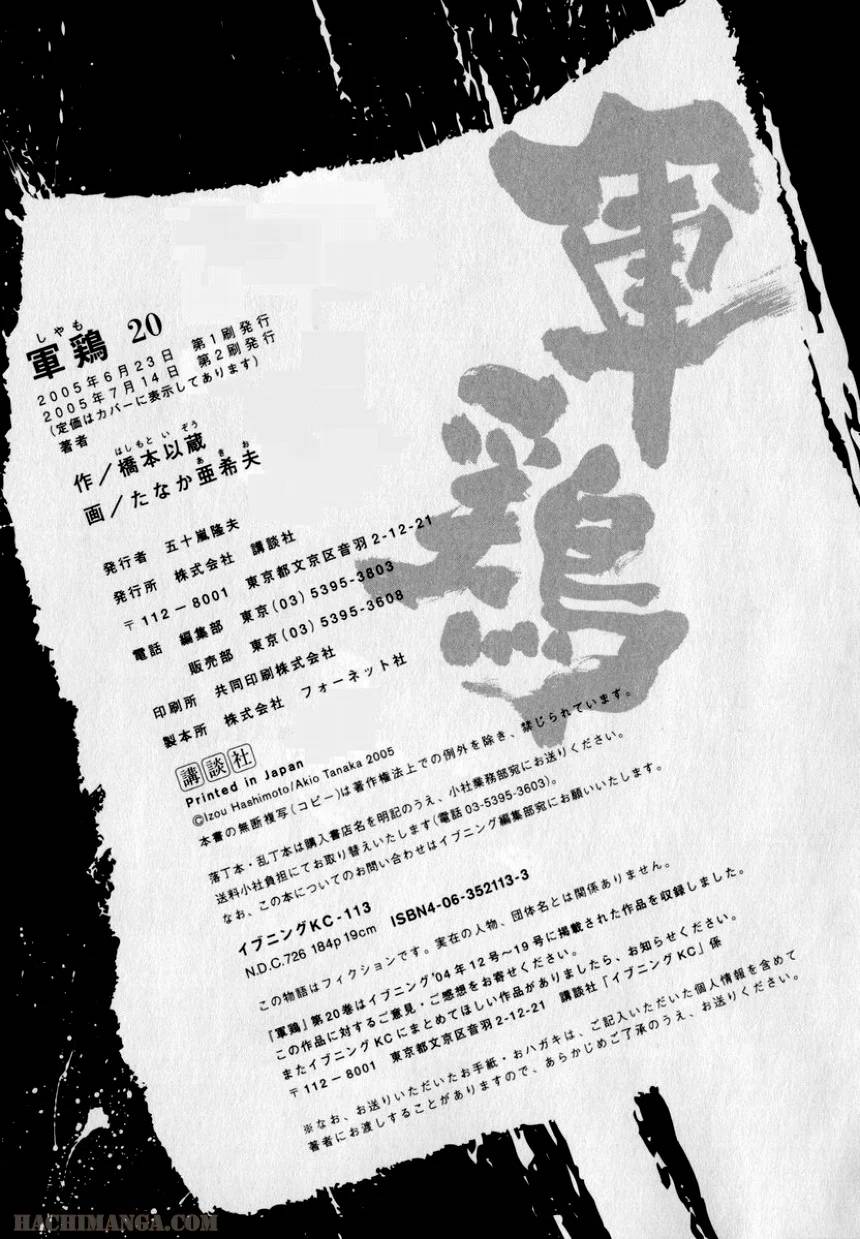 軍鶏
しゃも
軍鶏 20
2005年6月23日 第1刷発行
2005年7月14日 第2刷発行
(定価はカバーに表示してあります)
著者
はしもと い ぞう
作／橋本以蔵
あきお
画／たなか亜希夫
発行者 五十嵐隆夫
発行所 株式会社 講談社
〒112－8001 東京都文京区音羽2-12-21
電話 編集部 東京(03)5395-3803
販売部 東京(03)5395-3608
印刷所 共同印刷株式会社
製本所 株式会社 フォーネット社
講談社
Printed in Japan
©Izou Hashimoto/Akio Tanaka 2005
本書の無断複写(コピー)は著作権法上での例外を除き、禁じられています。
落丁本・乱丁本は購入書店名を明記のうえ、小社業務部宛にお送りください。
送料小社負担にてお取り替えいたします(電話 03-5395-3603)。
なお、この本についてのお問い合わせはイブニング編集部宛にお願いいたします。
イブニングKC-113
N.D.C.726 184p 19cm ISBN4-06-352113-3
この物語はフィクションです。実在の人物、団体名とは関係ありません。
「軍鶏」第20巻はイブニング'04年12号～19号に掲載された作品を収録しました。
この作品に対するご意見・ご感想をお寄せください。
またイブニングKCにまとめてほしい作品がありましたら、お知らせください。
〒112－8001 東京都文京区音羽2-12-21 講談社「イブニングKC」係
※なお、お送りいただいたお手紙・おハガキは、ご記入いただいた個人情報を含めて
著者にお渡しすることがありますので、あらかじめご了承のうえ、お送りください。
HACHIMANGA.COM